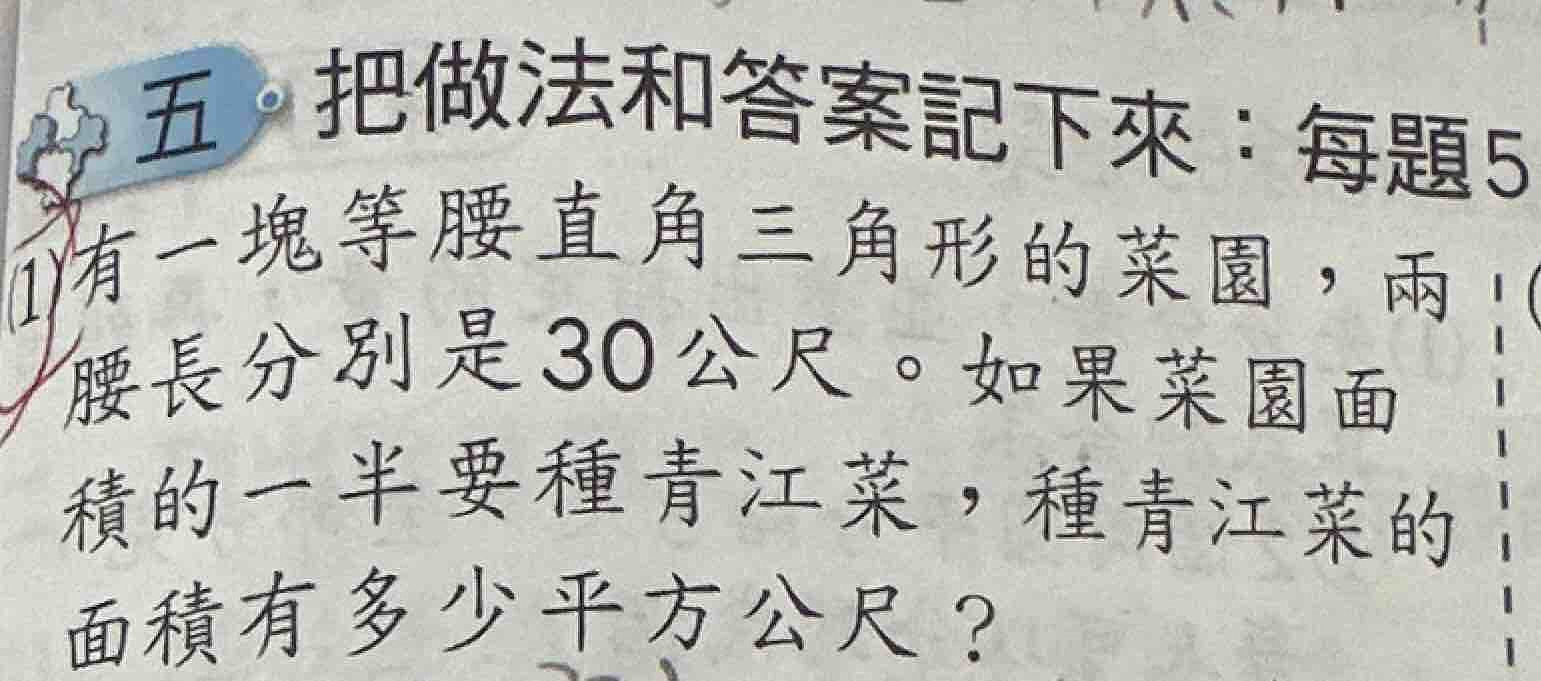 五 把做法和答案記下來：每題5
(1)有一塊等腰直角三角形的菜園，兩
腰長分別是30公尺。如果菜園面
積的一半要種青江菜，種青江菜的
面積有多少平方公尺？